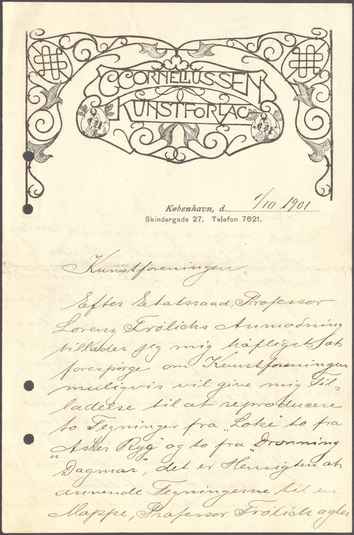 CCORNELIUSSEN
KUNSTFORLAG
København, d. 1/10 1901
Skindergade 27. Telefon 7621.
Kunstforeningen
Efter Etatsraad, Professor
Lorenz Frölichs Anmodning
tillader jeg mig høfligst at
forespørge om Kunstforeningen
muligvis vil give mig Til-
ladelse til at reproducere
to Tegninger fra "Loke" to fra
"Asker Ryg" og to fra "Dronning
Dagmar", det er Hensigten at
anvende Tegningerne til en
Mappe, Professor Frölich agter